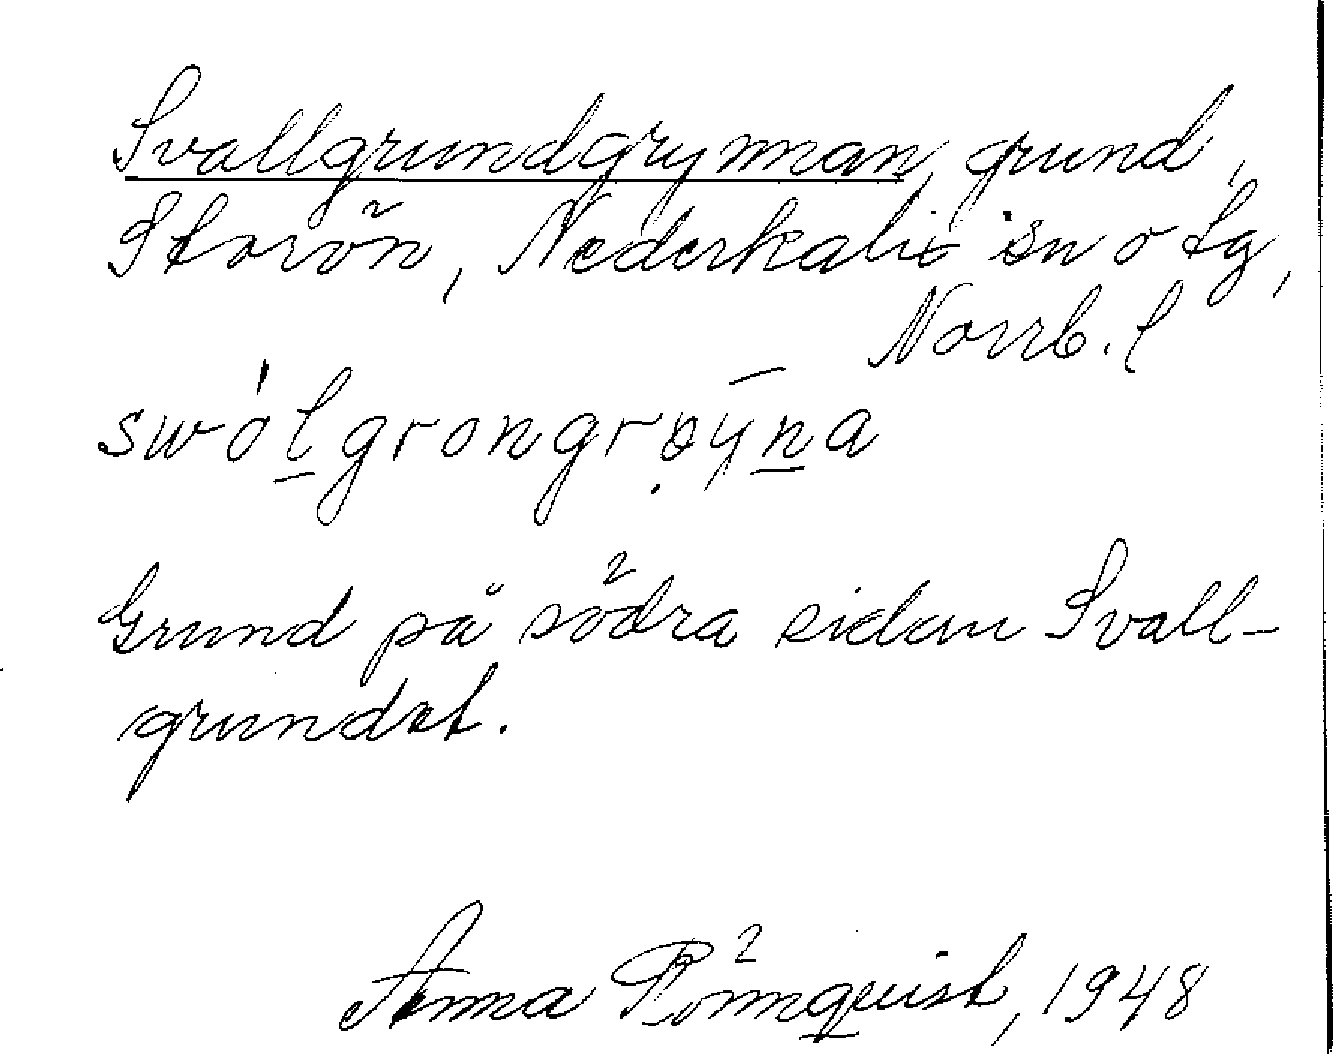 Svallgrundgrynnan, grund,
Storön, Nederkalix sn o tg,
Norrb. l
swólgrongrøȳna
Grund på södra sidan Svall-
grundet.
Anna Rönnquist, 1948